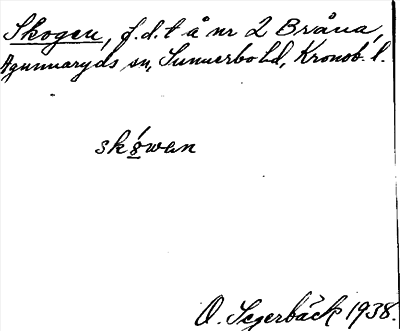 Skogen, f.d.t å nr 2 Bråna,
Agunnaryds sn, Sunnerbo hd, Kronob. l.
skówan
O. Segerbäck 1938.